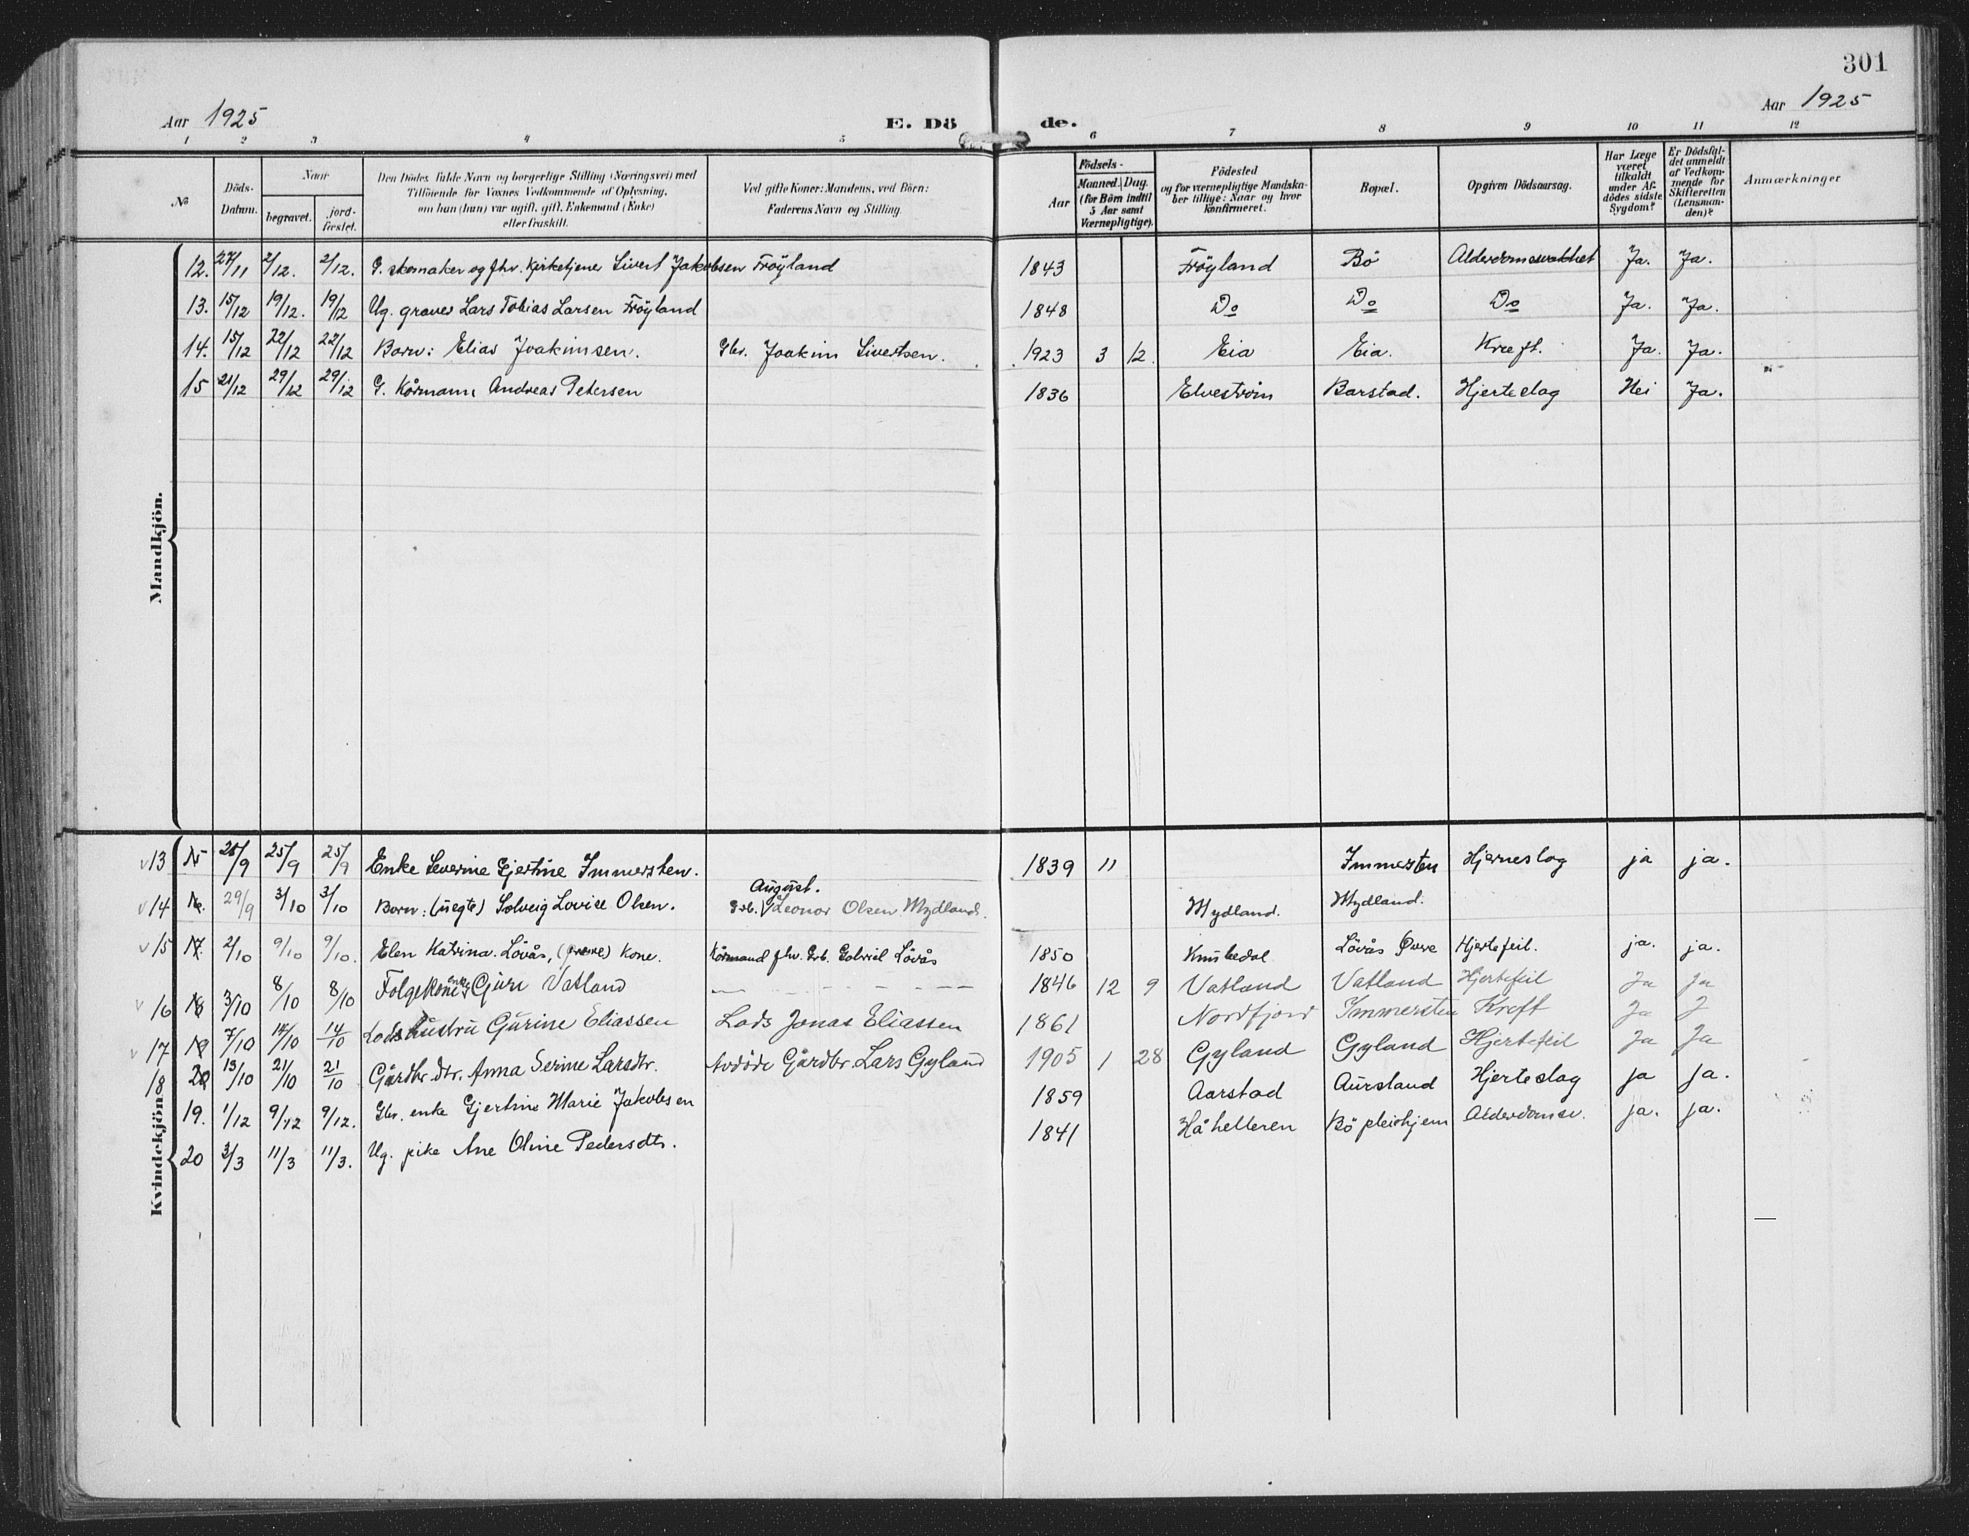 301
Aar 1925
E. Dö de.
Aar 1925
1 2 3 4 5 6 7 8 9 10 11 12
No
Döds-Datum.
Naar
begravet.
jord-fæstet.
Den Dödes fulde Navn og borgerlige Stilling (Næringsvei) med
Tilföiende for Voxnes Vedkommende af Oplysning,
om han (hun) var ugift, gift, Enkemand (Enke)
eller fraskilt.
Ved gifte Koner: Mandens, ved Börn:
Faderens Navn og Stilling.
Födsels-
Aar
Maaned. Dag.
(for Börn indtil
5 Aar samt
Værnepligtige).
Födested
og for værnepligtige Mandska-
ber tillige: Naar og hvor
konfirmeret.
Bopæl.
Opgiven Dödsaarsag.
Har Læge
været
tilkaldt
under Af-
dödes sidste
Sygdom?
Er Dödsfal-
det anmeldt
af Vedkom-
mende for
Skifteretten
(Lensman-
den)?
Anmærkninger
Mandkjön.
12. 27/11 2/12. 2/12. G. skomaker og fhv. Kirketjener Sivert Jakobsen Fröyland 1843 Fröyland Bö Alderdomssvakhet Ja. Ja.
13. 15/12 19/12. 19/12 Ug. graver Lars Tobias Larsen Fröyland 1848 Do Do Do Ja. Ja.
14. 15/12 22/12 22/12 Barn: Elias Joakimsen. Gbr. Joakim Sivertsen. 1923 3 12. Eia Eia. Kræft. Ja. Ja.
15 21/12 29/12 29/12 G. Kårmann Andreas Petersen 1836 Elvestrøm Barstad. Hjerteslag Nei Ja.
Kvindekjön.
13 15 25/9 25/9 Enke Severine Gjertine Immersten. 1839 11 Immersten Hjerneslag ja ja.
August.
14 29/9 3/10 3/10 Barn: (uegte) Solveig Lovise Olsen. Gbr. Leonor Olsen Mydland. Mydland. Mydland.
15 17. 2/10 9/10 9/10. Elen Katrina Lövås, Kone. Kårmand fhv. Grb. Gabriel Lövås 1850 Knubedal Lövås Övre Hjertefeil. ja. ja.
16 18 3/10 8/10 8/10 Folgekone enke Guri Vatland — 1846 12 9 Vatland Vatland Hjertefeil Ja Ja
17 19 7/10 14/10 14/10 Lodshustru Gurine Eliassen Lods Jonas Eliassen 1861 Nordfjord Immersten Kreft Ja J
18 20 13/10 21/10 21/10 Gårdbr. dtr. Anna Serine Larsdtr. Avdöde Gårdbr. Lars Gyland 1905 1 28 Gyland Gyland Hjertefeil Ja Ja
19. 1/12 9/12 9/12. Gbr. enke Gjertine Marie Jakobsen 1859 Aarstad Aursland Hjerteslag ja Ja.
20 3/3 11/3 11/3. Ug. pike Ane Oline Pedersdtr. 1841 Håhelleren Bö pleiehjem Alderdomsv. ja. ja.